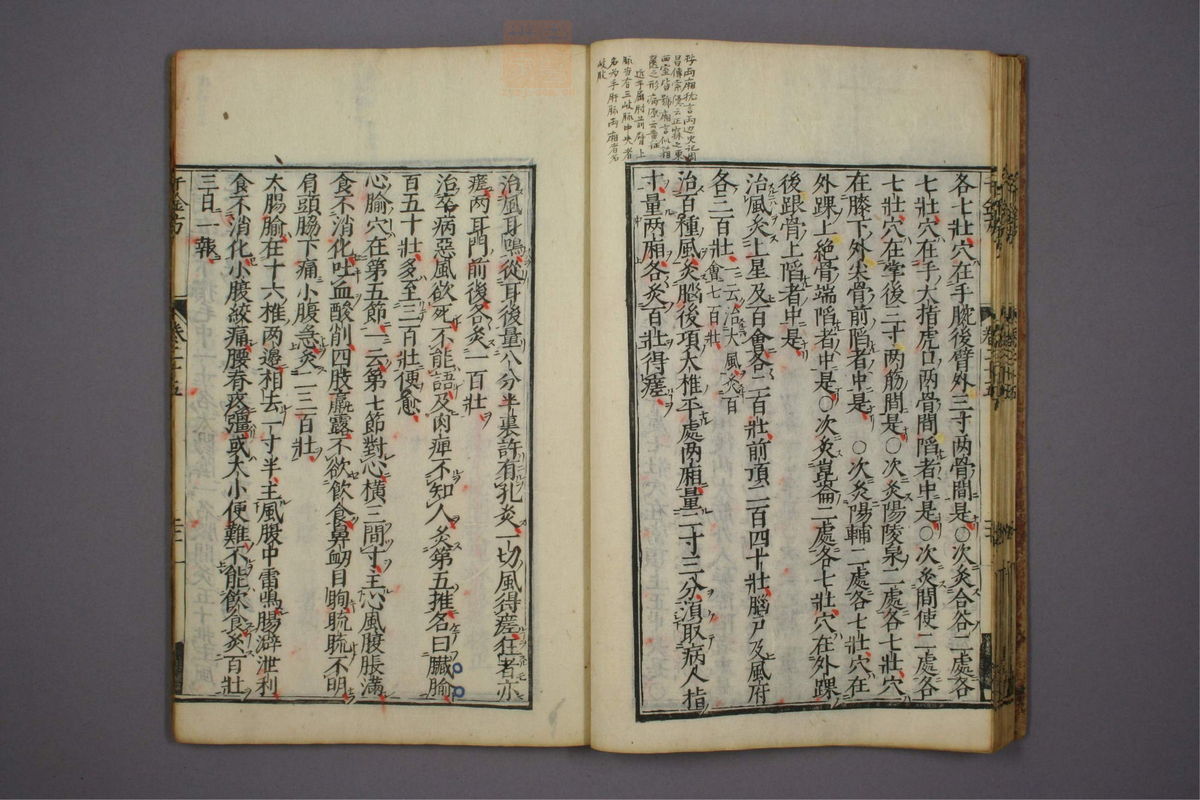 各七壯穴在手腕後臂外三寸两骨間是○次灸合谷二處各
七壯穴在手大指虎口两骨間䧟者中是○次灸間使二處各
七壯穴在掌後三寸两筋間是○次灸陽陵泉二處各七壯穴
在膝下外尖骨前䧟者中是○次灸陽輔二處各七壯穴在
外踝上絶骨端䧟者中是○次灸崑崙二處各七壯穴在外踝
後跟骨上䧟者中是
治風灸上星及百會各二百壯前頂二百四十壯腦戶及風府
各三百壯
一云治大風灸百
會七百壯
治百種風灸腦後項大椎平處两廂量二寸三分須取病人指
寸量两廂各灸百壯得瘥
治風耳鳴從耳後量八分半裏許有孔灸一切風得瘥狂者亦
瘥两耳門前後各灸一百壯
治卒病惡風欲死不能語及肉痺不知人灸第五椎名曰臓腧
百五十壯多至三百壯便愈
心腧穴在第五節一云第七節對心横三間寸主心風腹脹滿
食不消化吐血酸削四肢羸露不欲飲食鼻衂目眴䀮䀮不明
肩頭脇下痛小腹急灸二三百壯
大腸腧在十六椎两邉相去一寸半主風腹中雷鳴腸澼泄利
食不消化小腹絞痛腰脊疼彊或大小便難不能飲食灸百壯
三日一報
千金方
卷二十五